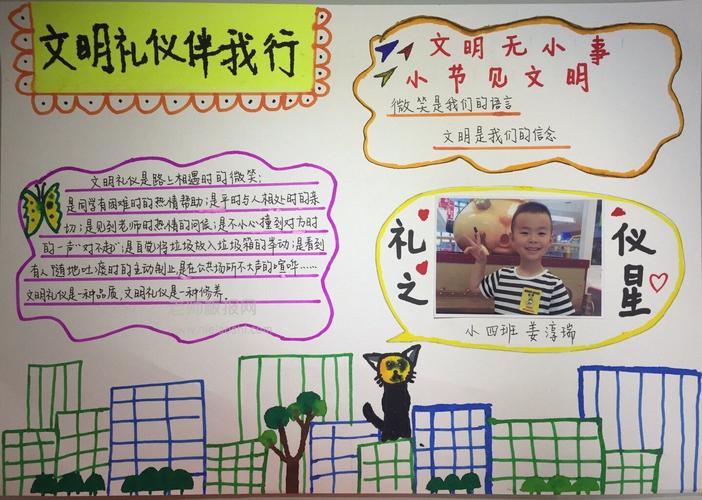 文明礼仪伴我行
文明无小事
小节见文明
微笑是我们的语言
文明是我们的信念
文明礼仪是路上相遇时的微笑;
是同学有困难时的热情帮助;是平时与人相处时的亲
切;是见到老师时的热情的问候;是不小心撞到对方时
的一声“对不起”;是自觉将垃圾放入垃圾箱的举动;是看到
有人随地吐痰时的主动制止,是在公共场所不大声的喧哗……
文明礼仪是一种品质,文明礼仪是一种修养.
老师板报网
礼之
仪星
小四班 姜淳瑞